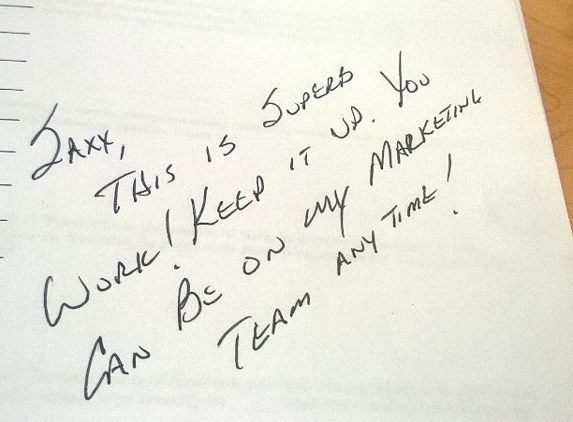 SAXX,
THIS IS SUPERB
WORK! KEEP IT UP. YOU
CAN BE ON MY MARKETING
TEAM ANY TIME!